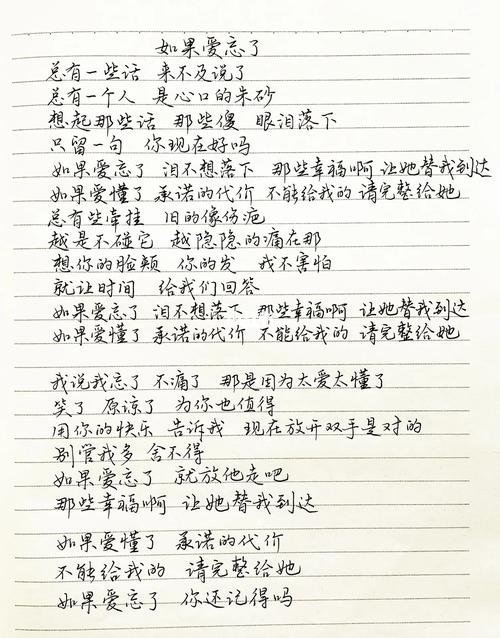 如果爱忘了
总有一些话 来不及说了
总有一个人 是心口的朱砂
想起那些话 那些傻 眼泪落下
只留一句 你现在好吗
如果爱忘了 泪不想落下 那些幸福啊 让她替我到达
如果爱懂了 承诺的代价 不能给我的 请完整给她
总有些牵挂 旧的像伤疤
越是不碰它 越隐隐的痛在那
想你的脸颊 你的发 我不害怕
就让时间 给我们回答
如果爱忘了 泪不想落下 那些幸福啊 让她替我到达
如果爱懂了 承诺的代价 不能给我的 请完整给她
我说我忘了 不痛了 那是因为太爱太懂了
笑了 原谅了 为你也值得
用你的快乐 告诉我 现在放开双手是对的
别管我多 舍不得
如果爱忘了 就放他走吧
那些幸福啊 让她替我到达
如果爱懂了 承诺的代价
不能给我的 请完整给她
如果爱忘了 你还记得吗